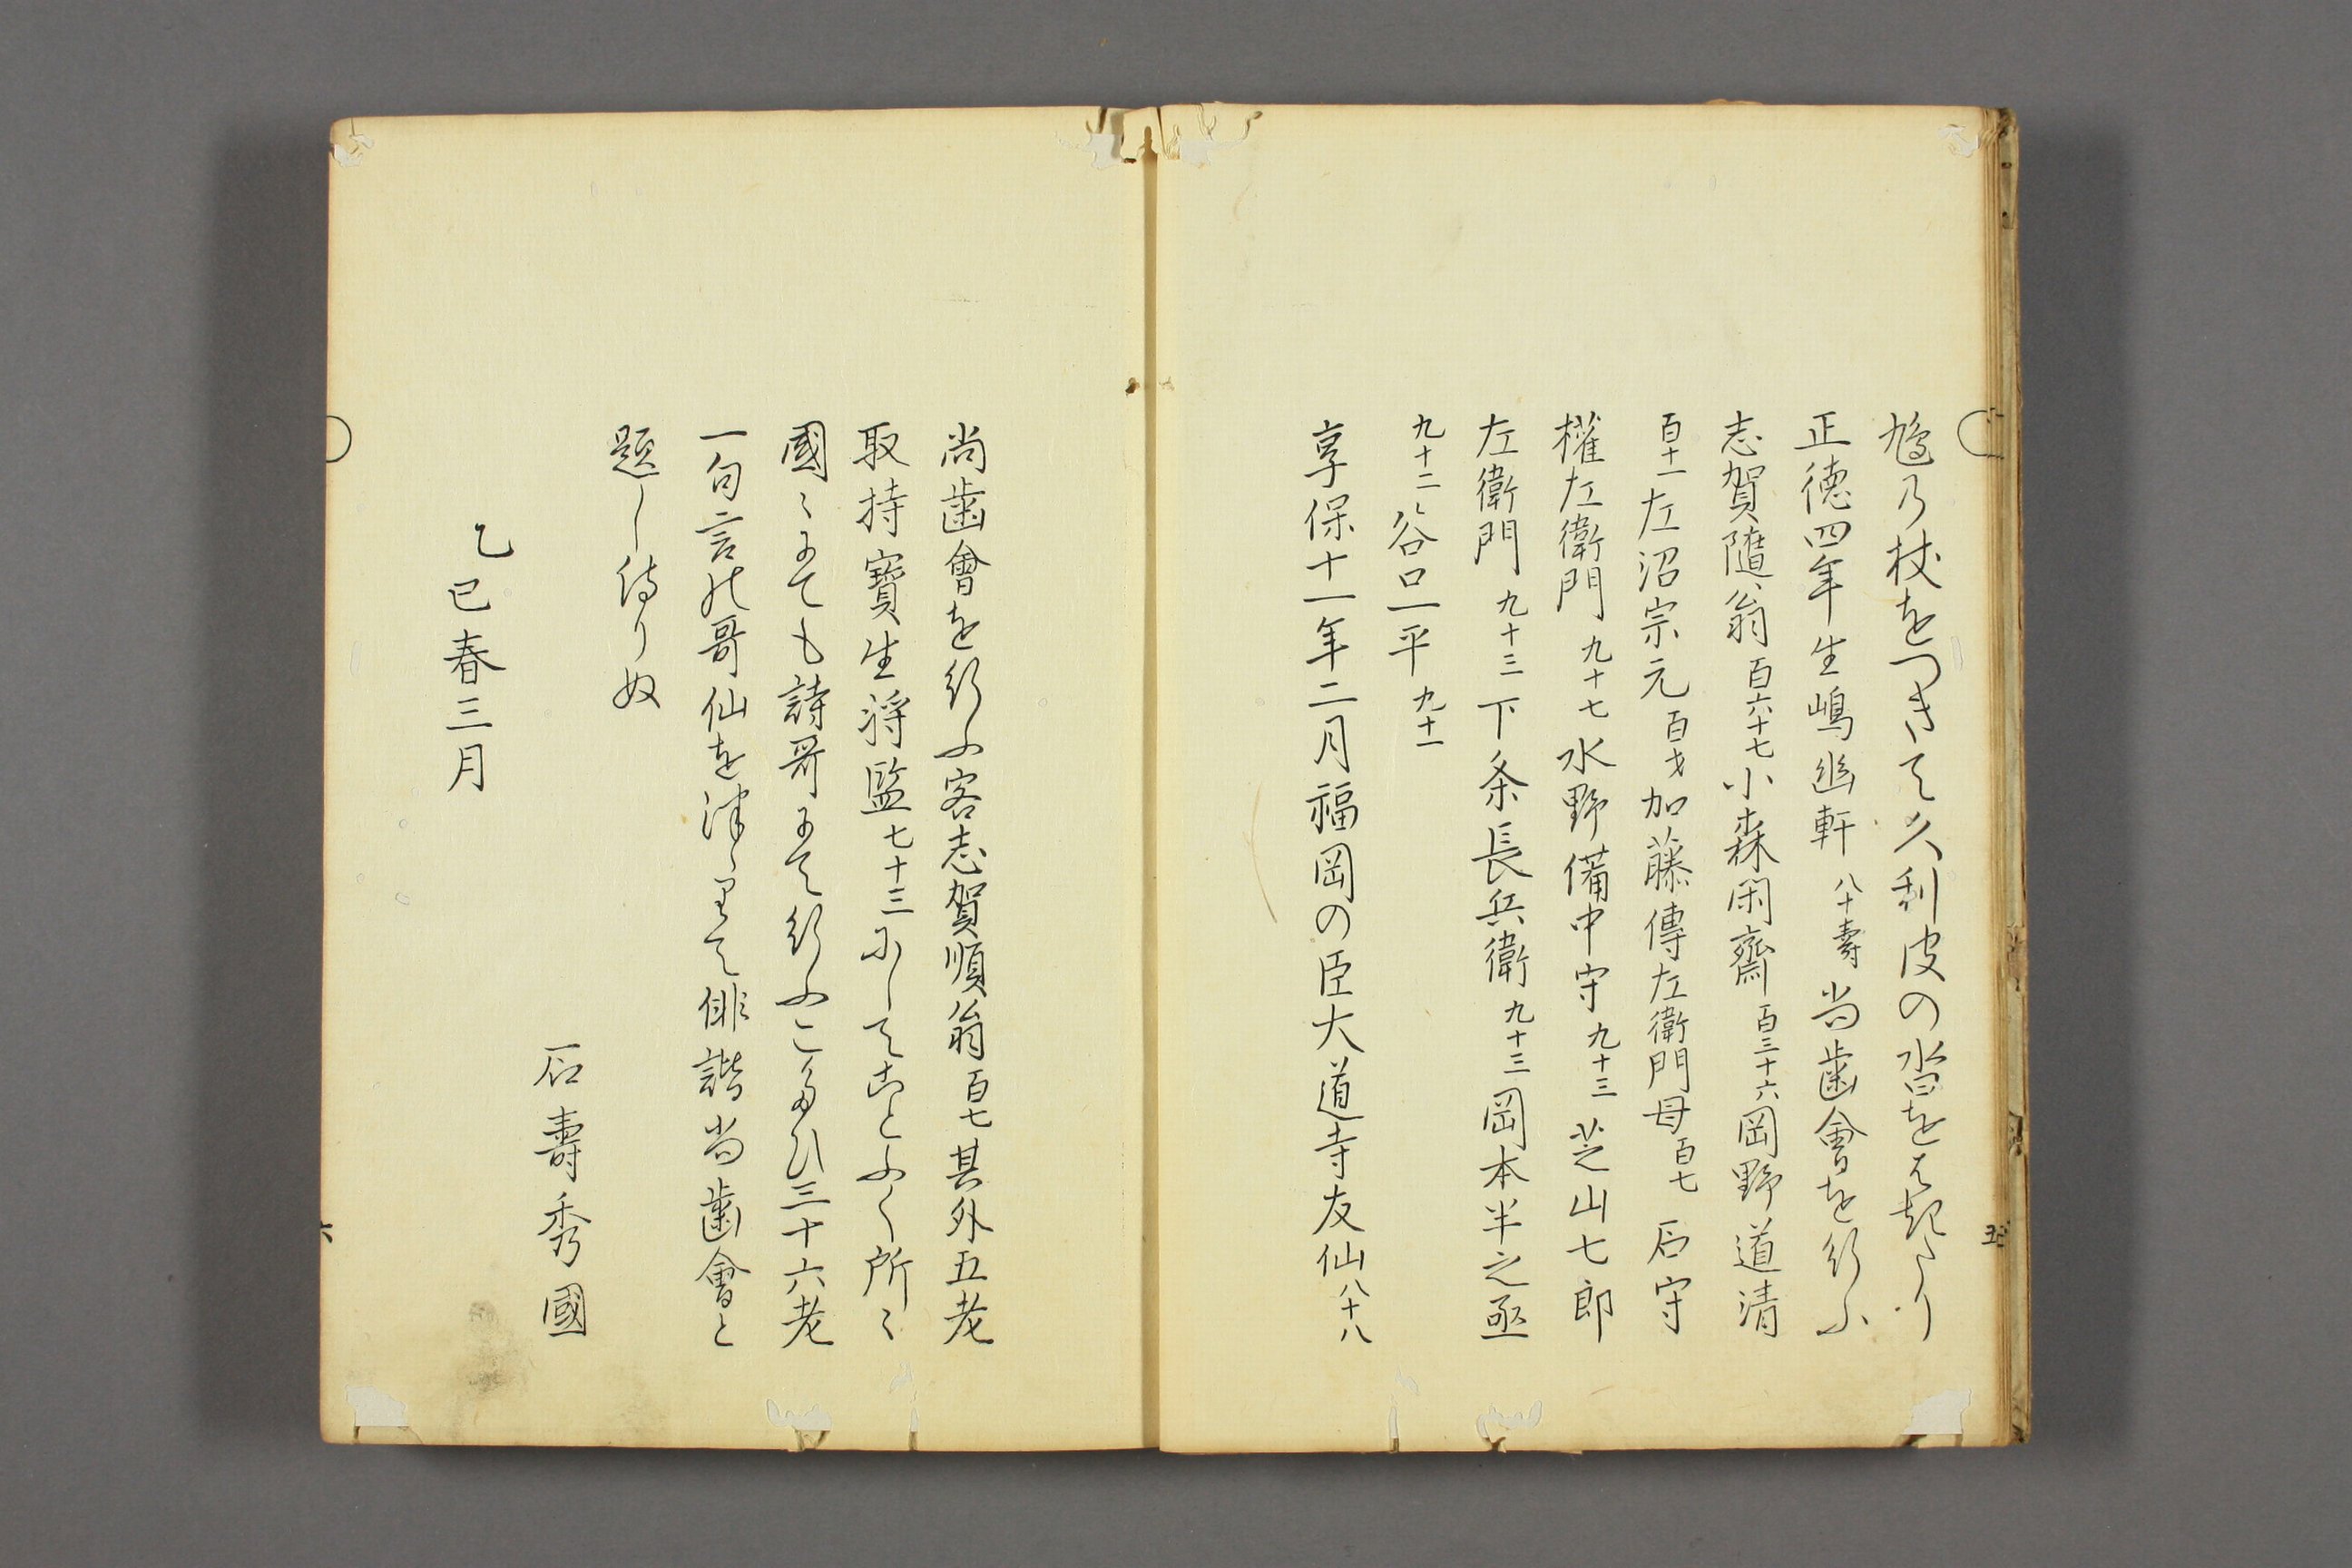 鳩乃杖をつきて久利皮の沓をはけり
正徳四年生嶋幽軒八十壽尚歯會を行ふ
志賀隨翁百六十七小森閑齋百三十六岡野道清
百十一左沼宗元百才加藤傳左衛門母百七石守
權左衛門九十七水野備中守九十三芝山七郎
左衛門九十三下条長兵衛九十三岡本半之丞
九十二谷口一平九十一
享保十一年二月福岡の臣大道寺友仙八十八
尚歯會を行ふ客志賀順翁百七其外五老
取持寳生将監七十三にしてことふく所〻
國〻にても詩哥にて行ふこたひ三十六老
一句言の哥仙を津〻りて俳諧尚歯會と
題し侍りぬ
石壽秀國
乙巳春三月
五
六